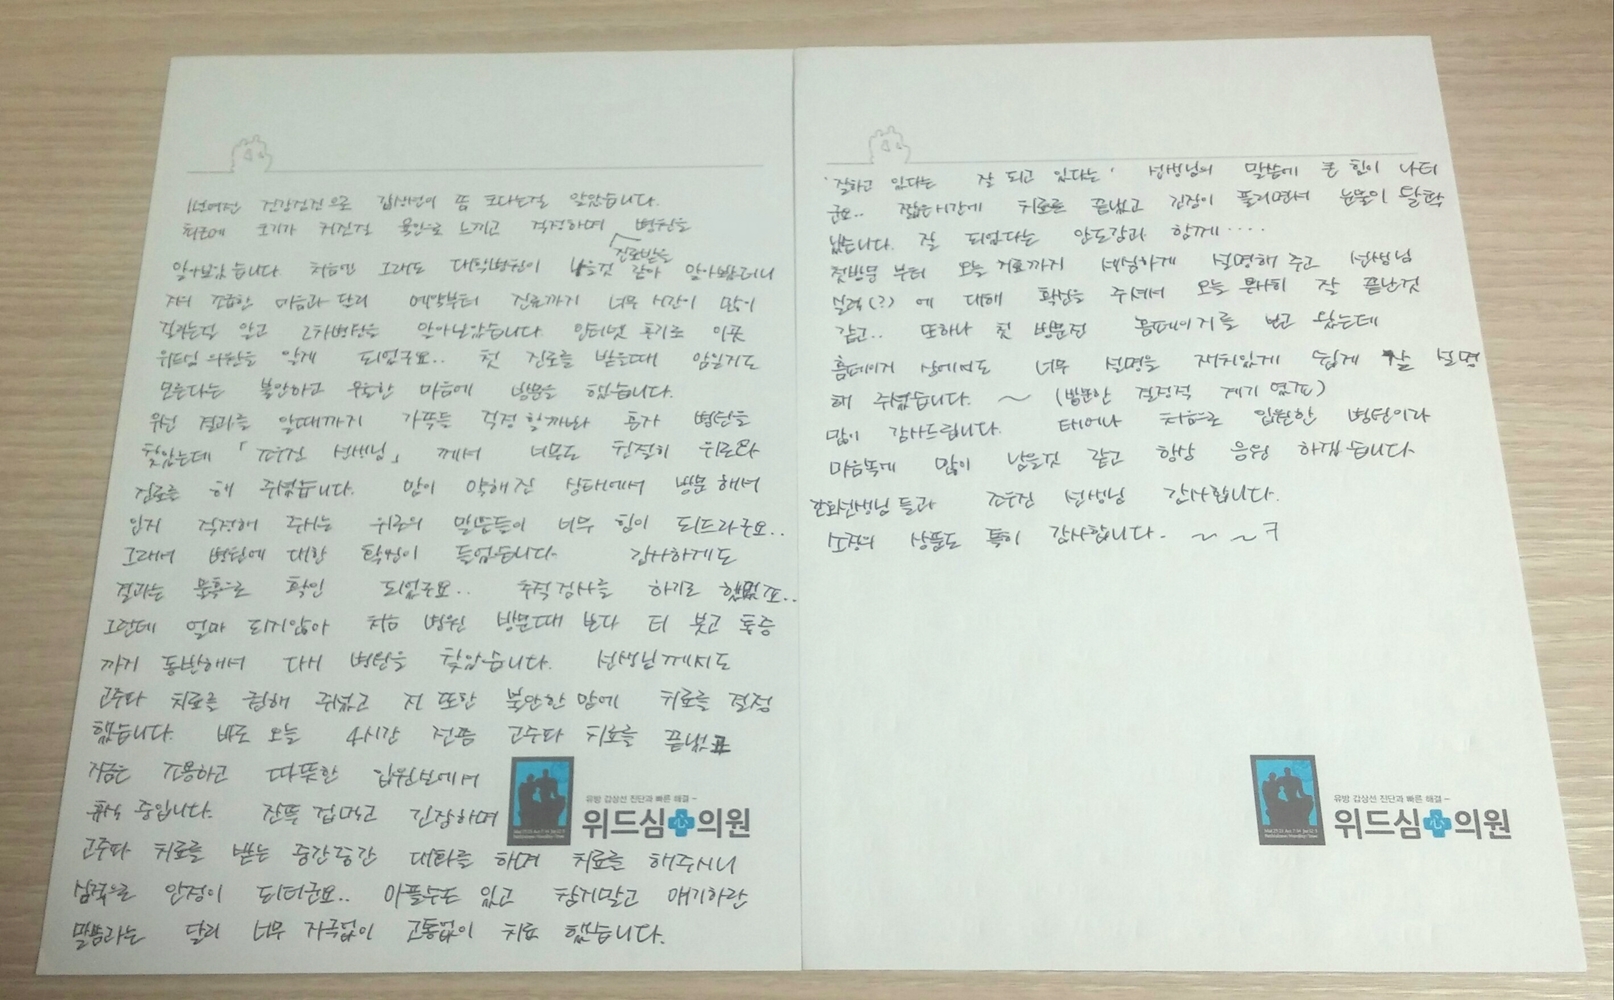 1년여전 건강검진으로 갑상선이 쫌 크다는걸 알았습니다.
최근에 크기가 커진걸 육안으로 느끼고 걱정하며 병원을
진료받을
알아보았습니다. 처음엔 그래도 대학병원이 나을것 같아 알아봤더니
저의 조급한 마음과 달리 예약부터 진료까지 너무 시간이 많이
걸리는걸 알고 2차병원을 알아보았습니다. 인터넷 후기로 이곳
위드심 의원을 알게 되었군요.. 첫 진료를 받을때 암일지도
모른다는 불안하고 우울한 마음에 방문을 했습니다.
우선 결과를 알때까지 가족들 걱정할까봐 혼자 병원을
찾았는데 「조우진 선생님」 께서 너무도 친절히 위로와
진료를 해 주셨습니다. 맘이 약해진 상태에서 방문해서
인지 걱정해 주시는 위로의 말씀들이 너무 힘이 되드라군요..
그래서 병원에 대한 확신이 들었습니다. 감사하게도
결과는 물혹으로 확인 되었군요.. 추적검사를 하기로 했었죠..
그런데 얼마 되지않아 처음 병원 방문때 보다 더 붓고 통증
까지 동반해서 다시 병원을 찾았습니다. 선생님께서도
고주파 치료를 권해 주셨고 저 또한 불안한 맘에 치료를 결정
했습니다. 바로 오늘 4시간 전쯤 고주파 치료를 끝냈고
지금은 조용하고 따뜻한 입원실에서
휴식 중입니다. 잔뜩 겁먹고 긴장하며
고주파 치료를 받는 중간중간 대화를 하며 치료를 해주시니
심적으로 안정이 되더군요.. 아플수도 있고 참지말고 얘기하란
말씀과는 달리 너무 자극없이 고통없이 치료 했습니다.
유방 갑상선 진단과 빠른 해결~
위드심 의원
'잘하고 있다는 잘 되고 있다는' 선생님의 말씀에 큰 힘이 나더
군요.. 짧은시간에 치료를 끝냈고 긴장이 풀리면서 눈물이 왈칵
났습니다. 잘 되었다는 안도감과 함께....
첫방문 부터 오늘 치료까지 세심하게 설명해 주고 선생님
실력(?)에 대해 확신을 주셔서 오늘 무사히 잘 끝난것
같고.. 또하나 첫 방문전 홈페이지를 보고 왔는데
홈페이지 상에서도 너무 설명을 재치있게 쉽게 잘 설명
해 주셨습니다. ~ (방문한 결정적 계기 였죠)
많이 감사드립니다. 태어나 처음으로 입원한 병원이라
마음속에 많이 남을것 같고 항상 응원 하겠습니다
간호선생님 들과 조우진 선생님 감사합니다.
소정의 상품도 특히 감사합니다. ~ ~ ㅋ
유방 갑상선 진단과 빠른 해결~
위드심 의원